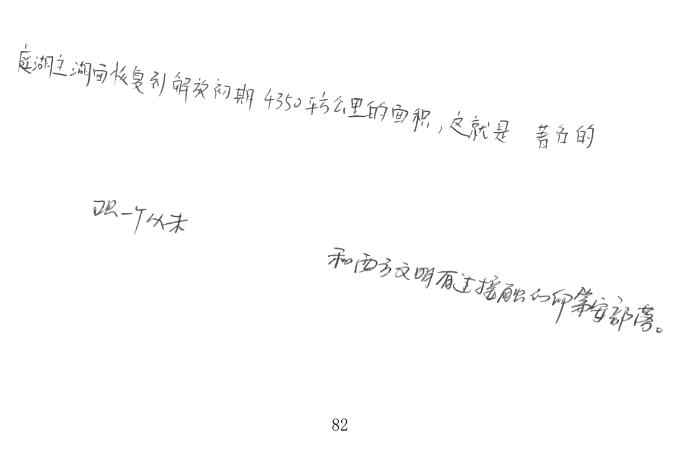 庭湖主湖面恢复到解放初期4350平方公里的面积,这就是 著名的
现一个从未
和西方文明有过接触的印第安部落。
82